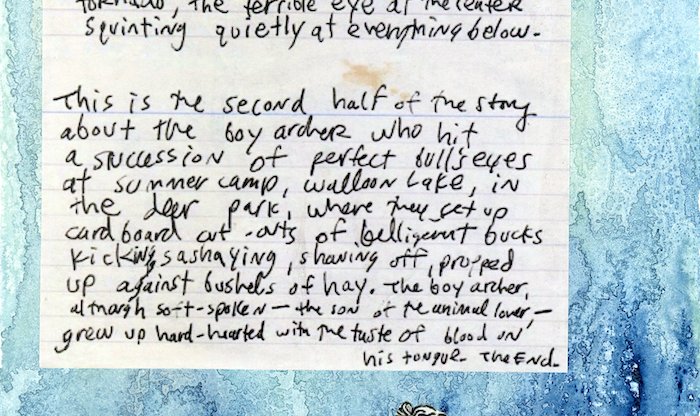 tornado, the terrible eye at the center
Squinting quietly at everything below.
This is the second half of the story
about the boy archer who hit
a succession of perfect bullseyes
at summer camp, Walloon Lake, in
the deer park, where they set up
cardboard cut-outs of belligerent bucks
kicking, sashaying, showing off, propped
up against bushels of hay. The boy archer,
although soft-spoken — the son of the animal lover, —
grew up hard-hearted with the taste of blood on
his tongue. The End.